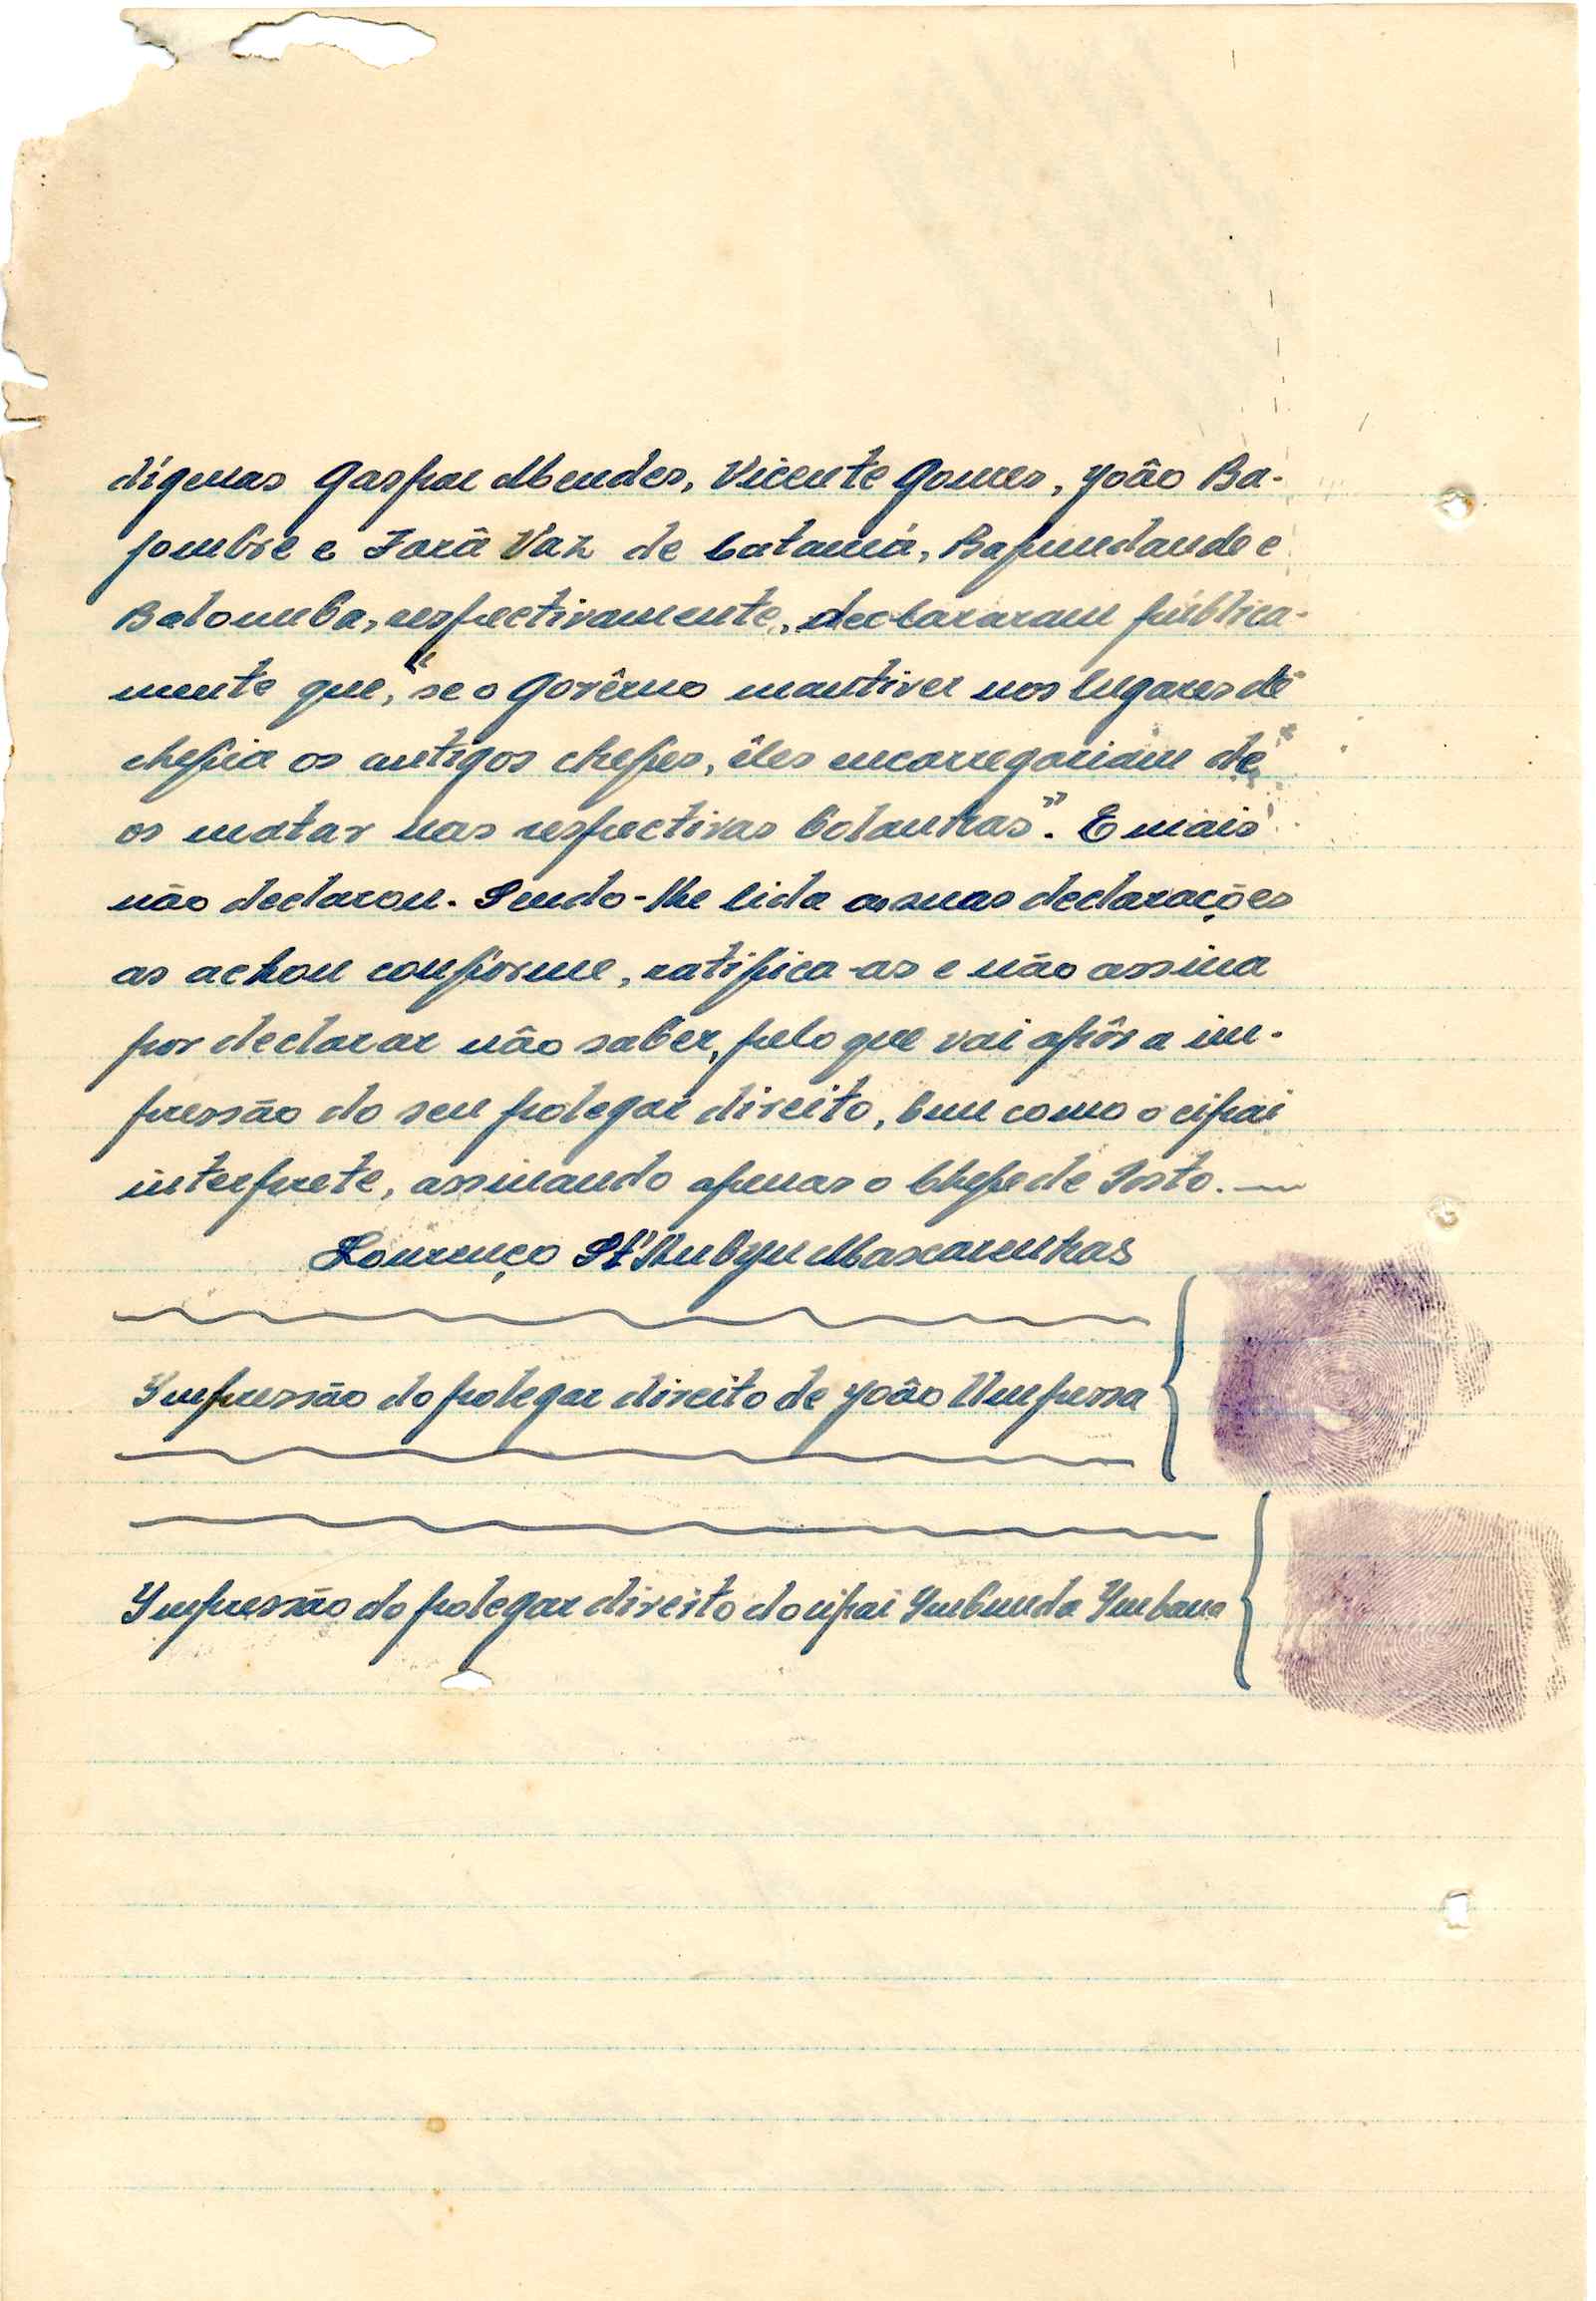 dígenas Gaspar Mendes, Vicente Gomes, João Ba-
pombre e Jorâ Vaz de Catamá, Bapundande e
Balomba, respectivamente, declararam pública-
mente que, "se o Govêrno mantiver nos lugares de
chefia os antigos chefes, êles encarregariam de
os matar nas respectivas bolanhas". E mais
não declarou. Sendo-lhe lida as suas declarações
as achou conforme, ratifica-as e não assina
por declarar não saber, pelo que vai apôr a im-
pressão do seu polegar direito, bem como o cipai
interprete, assinando apenas o Chefe de Posto.
Lourenço St'Aubyn Mascarenhas
Impressão do polegar direito de João Umpessa
Impressão do polegar direito do cipai Imbunda Imbana